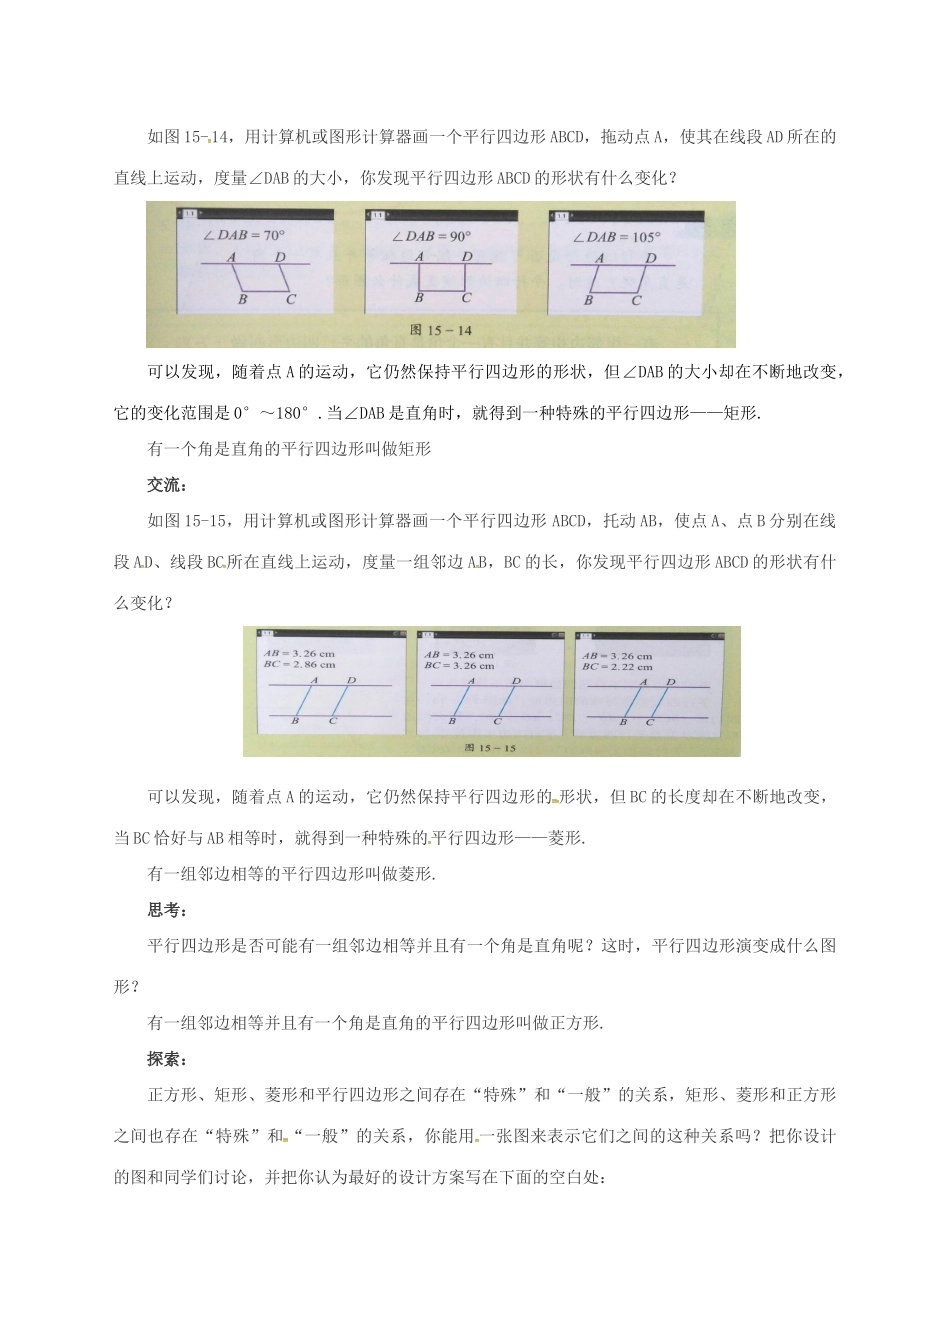 如图 15-14，用计算机或图形计算器画一个平行四边形 ABCD，拖动点 A，使其在线段 AD 所在的
直线上运动，度量∠DAB 的大小，你发现平行四边形 ABCD 的形状有什么变化？
1.1 1.1 1.1
∠DAB = 70° ∠DAB = 90° ∠DAB = 105°
A D A D A D
B C B C B C
图 15－14
可以发现，随着点 A 的运动，它仍然保持平行四边形的形状，但∠DAB 的大小却在不断地改变，
它的变化范围是 0°～180°.当∠DAB 是直角时，就得到一种特殊的平行四边形——矩形.
有一个角是直角的平行四边形叫做矩形
交流：
如图 15-15，用计算机或图形计算器画一个平行四边形 ABCD，托动 AB，使点 A、点 B 分别在线
段 AD、线段 BC 所在直线上运动，度量一组邻边 AB，BC 的长，你发现平行四边形 ABCD 的形状有什
么变化？
1.1 1.1 1.1
AB = 3.26 cm AB = 3.26 cm AB = 3.26 cm
BC = 2.86 cm BC = 3.26 cm BC = 2.22 cm
A D A D A D
B C B C B C
图 15－15
可以发现，随着点 A 的运动，它仍然保持平行四边形的 形状，但 BC 的长度却在不断地改变，
当 BC 恰好与 AB 相等时，就得到一种特殊的平行四边形——菱形.
有一组邻边相等的平行四边形叫做菱形.
思考：
平行四边形是否可能有一组邻边相等并且有一个角是直角呢？这时，平行四边形演变成什么图
形？
有一组邻边相等并且有一个角是直角的平行四边形叫做正方形.
探索：
正方形、矩形、菱形和平行四边形之间存在“特殊”和“一般”的关系，矩形、菱形和正方形
之间也存在“特殊”和“一般”的关系，你能用一张图来表示它们之间的这种关系吗？把你设计
的图和同学们讨论，并把你认为最好的设计方案写在下面的空白处：